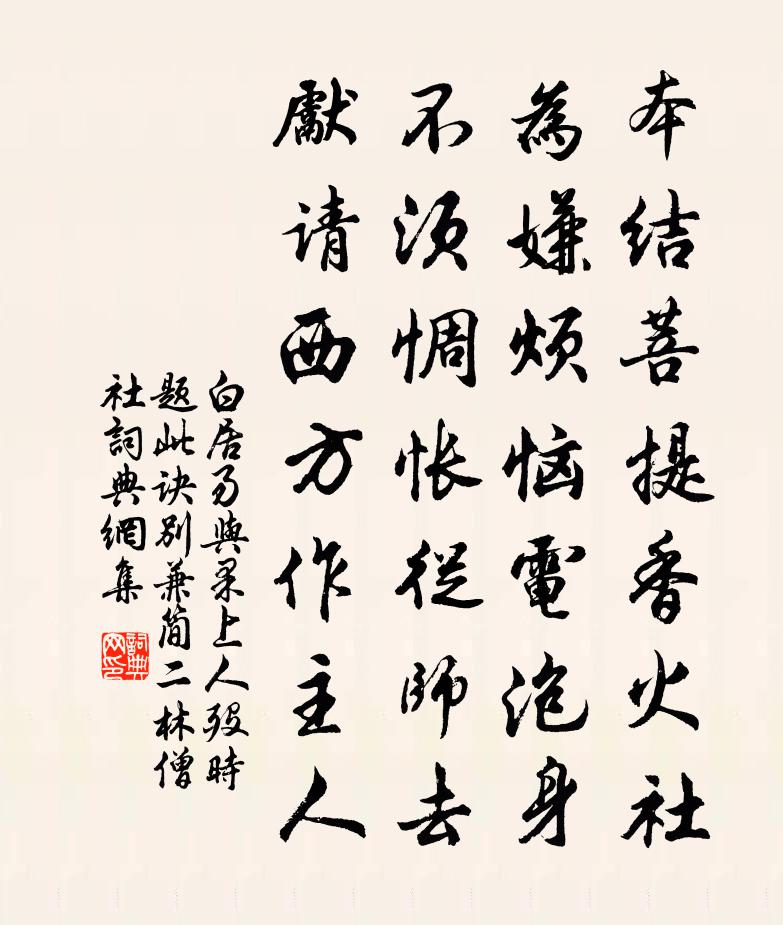 本结菩提香火社
為嫌烦恼電泡身
不须惆怅從師去
獻请西方作主人
白居易與果上人殁時
題此诀別兼简二林僧
社詞典網集
詞典网印